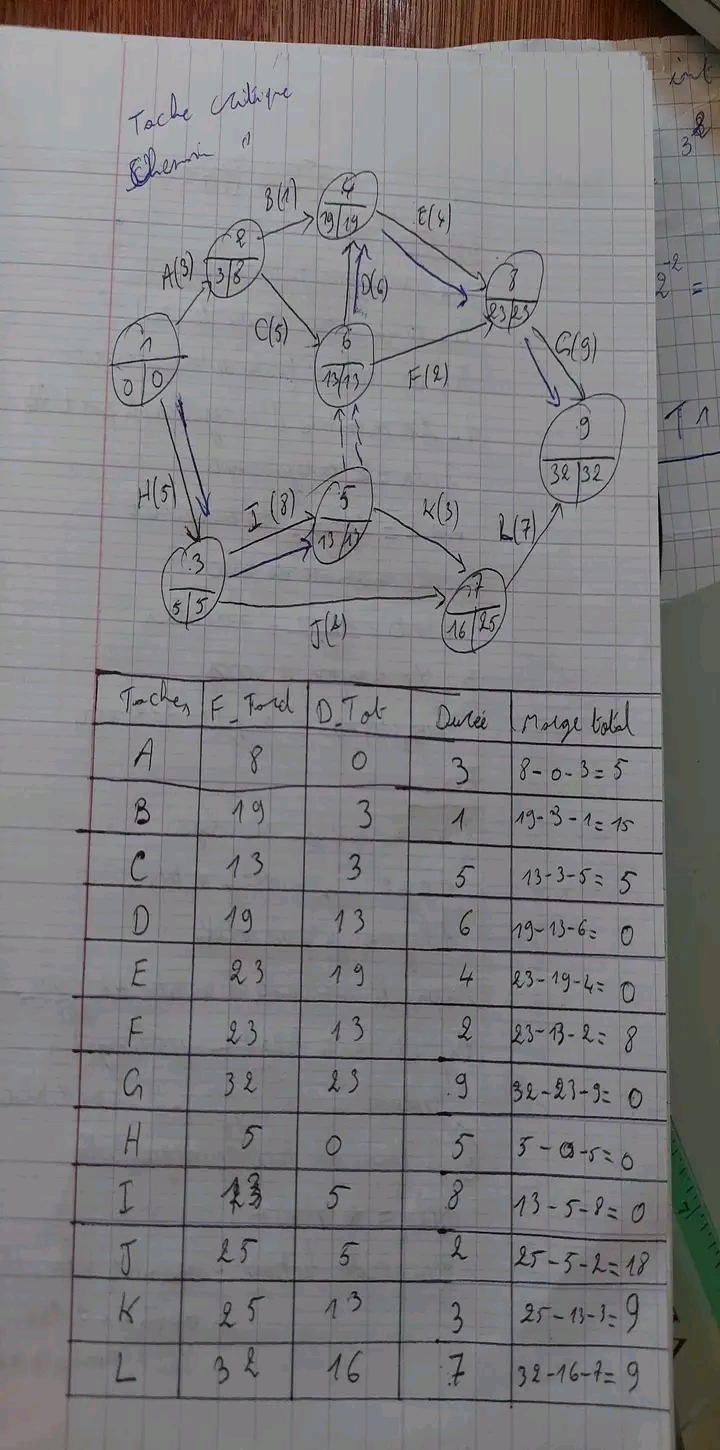 Tache critique
Chemin "
B(1)
4
19 | 19
E(4)
2
3 | 8
A(3)
8
23 | 23
D(6)
C(5)
6
13 | 13
F(2)
G(9)
1
0 | 0
9
32 | 32
H(5)
I (8)
5
13 | 13
K(3)
L(7)
3
5 | 5
7
16 | 25
J(2)
Taches F_Tard D_Tot Durée Marge total
A 8 0 3 8-0-3=5
B 19 3 1 19-3-1=15
C 13 3 5 13-3-5=5
D 19 13 6 19-13-6=0
E 23 19 4 23-19-4=0
F 23 13 2 23-13-2=8
G 32 23 9 32-23-9=0
H 5 0 5 5-0-5=0
I 13 5 8 13-5-8=0
J 25 5 2 25-5-2=18
K 25 13 3 25-13-3=9
L 32 16 7 32-16-7=9
int
2⁻² =
T1